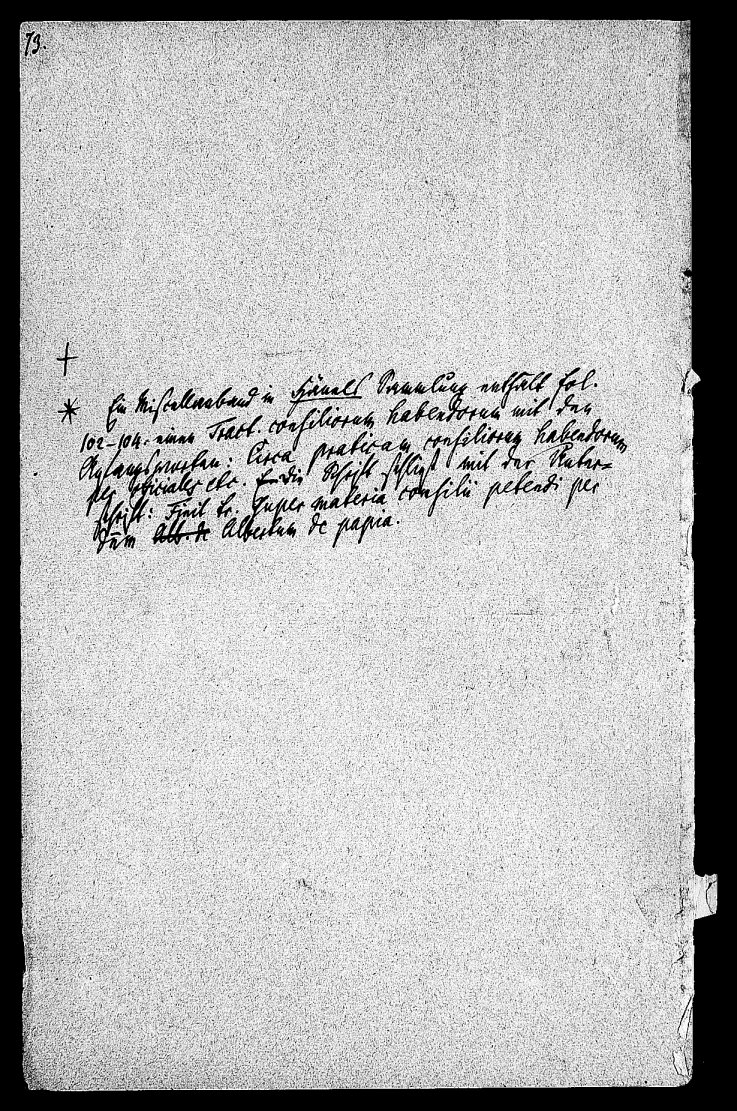 73.
†
* Ein Miscellanband in Hänels Sammlung enthält fol.
102-104. einen Tract. consiliorum habendorum mit den
Anfangsworten: Circa praticam consiliorum habendorum
per officiales etc. Die Schrift schließt mit der Unter=
schrift: Finit tr. super materia consilii petendi per
dūm Alb. de Albertum de papia.